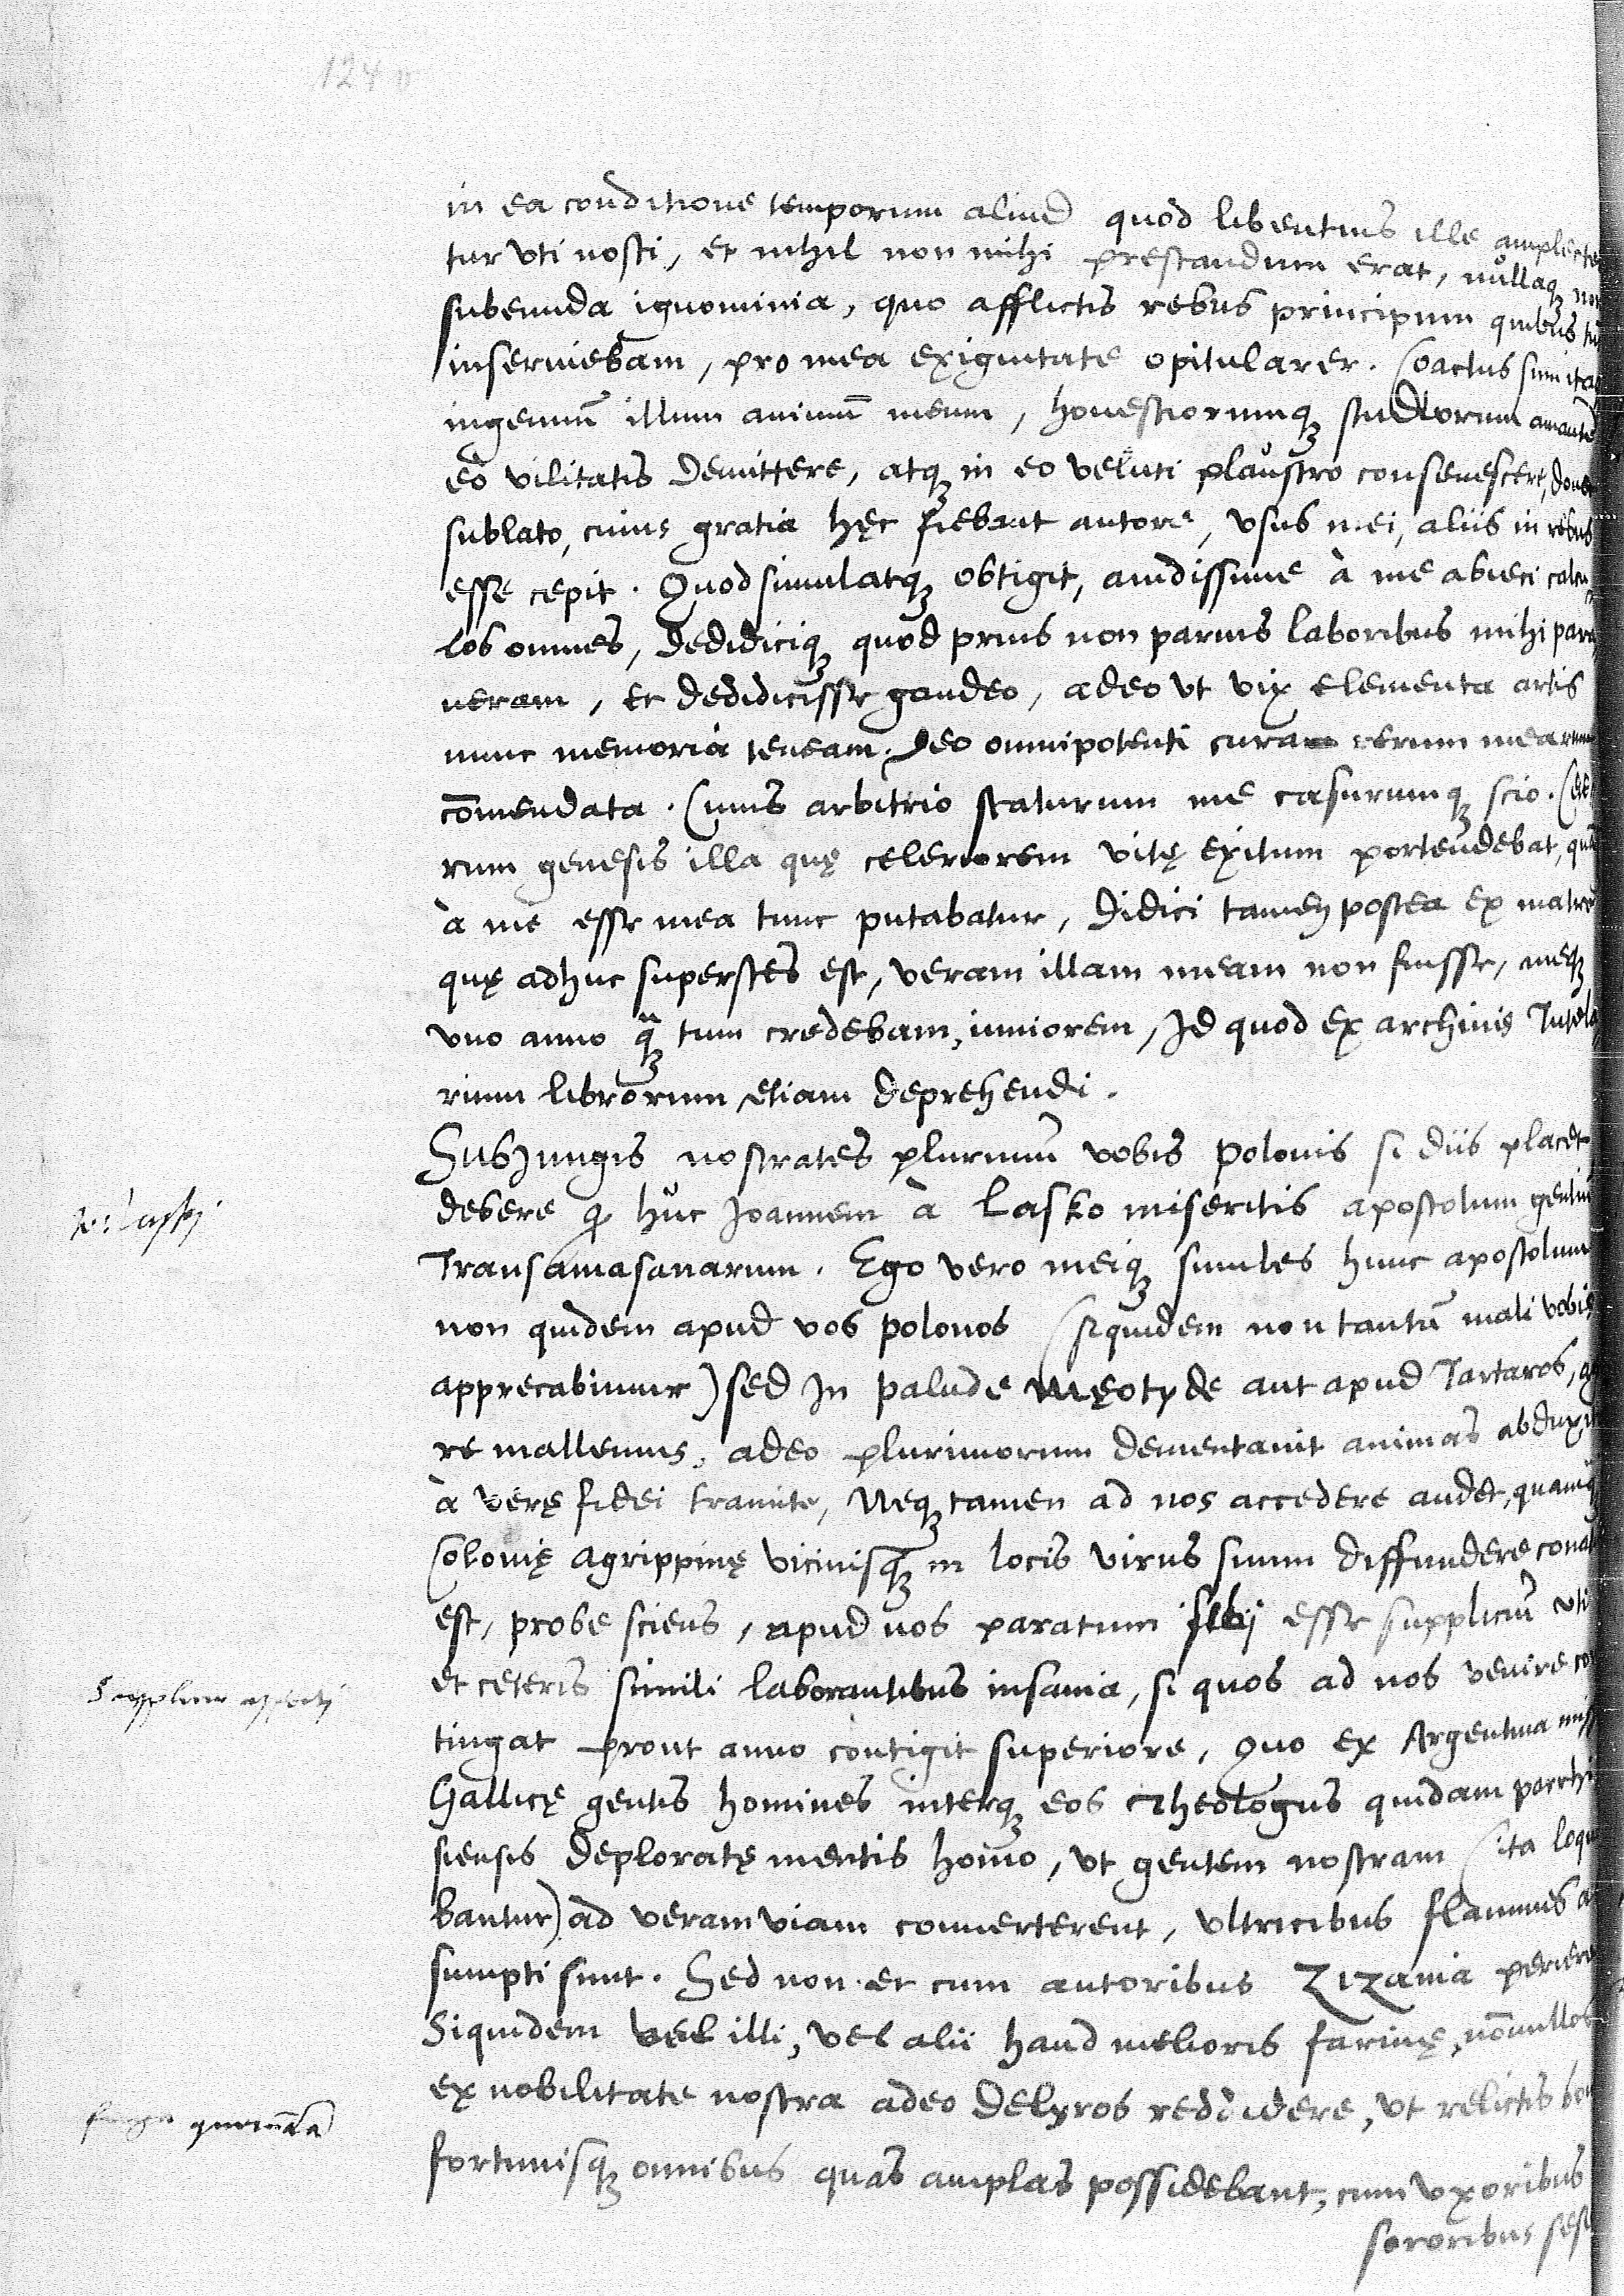 124 v
in ea conditione temporum aliud quod libentius ille amplecte
tur vti nosti, et nihil non mihi prestandum erat, nullaqꝫ non
subeunda ignominia, quo afflictis rebus principum quibus tū
inseruiebam, pro mea exiguitate opitularer. Coactus sum itaqꝫ
ingenuū illum animū meum, honestiorumqꝫ studiorum amantē
eò vilitatis demittere, atqꝫ in eo veluti plaustro consenescere, donec
sublato, cuius gratia hęc fiebant autore, vsus mei, aliis in rebus
esse cepit. Quod simulatqꝫ obtigit, auidissime à me abieci calcu
los omnes, dedidiciqꝫ quod prius non paruis laboribus mihi para
ueram, et dedidicisse gaudeo, adeo vt vix elementa artis
nunc memoria teneam. Deo omnipotenti cura rerum mearum
cōmendata. Cuius arbitrio staturum me casurumqꝫ scio. Cete
rum genesis illa quę celeriorem vitę exitum portendebat, quę
à me esse mea tunc putabatur, didici tamen postea ex matre
quę adhuc superstes est, veram illam meam non fuisse, meqꝫ
vno anno q̃ꝫ tum credebam, iuniorem, Id quod ex archiuis Tutela
rium librorum etiam deprehendi.
Subjungis nostrates plurimū vobis Polonis si diis placet
debere q̨ huc Joannem à Lasko miseritis apostolum gentiū
Transamasanarum. Ego vero meiqꝫ similes hunc apostolum
non quidem apud vos Polonos (siquidem non tantū mali vobis
apprecabimur) sed In palude Męotyde aut apud Tartaros, age
re mallemus, adeo plurimorum dementauit animas abduxit
à verę fidei tramite, Neqꝫ tamen ad nos accedere audet, quamqꝫ
Colonię Agrippinę vicinisqꝫ in locis virus suum diffundere conatus
est, probe sciens, apud nos paratum sibij esse suppliciū vti
et ceteris simili laborantibus insania, si quos ad nos venire con
tingat prout anno contigit superiore, quo ex Argentina missi
Gallicę gentis homines interqꝫ eos Theologus quidam parrhi
siensis deploratę mentis homo, vt gentem nostram (ita loque
bantur) ad veram viam conuerterent, vltricibus flammis ab
sumpti sunt. Sed non et cum autoribus zizania periere
Siquidem vel illi, vel alii haud melioris farinę, nōnullos
ex nobilitate nostra adeo delyros reddidere, vt relictis bonis
fortunisqꝫ omnibus quas amplas possidebant, cum vxoribus
sororibus sese
Jo: Laski
Supplicio affecti
fuga quorundā